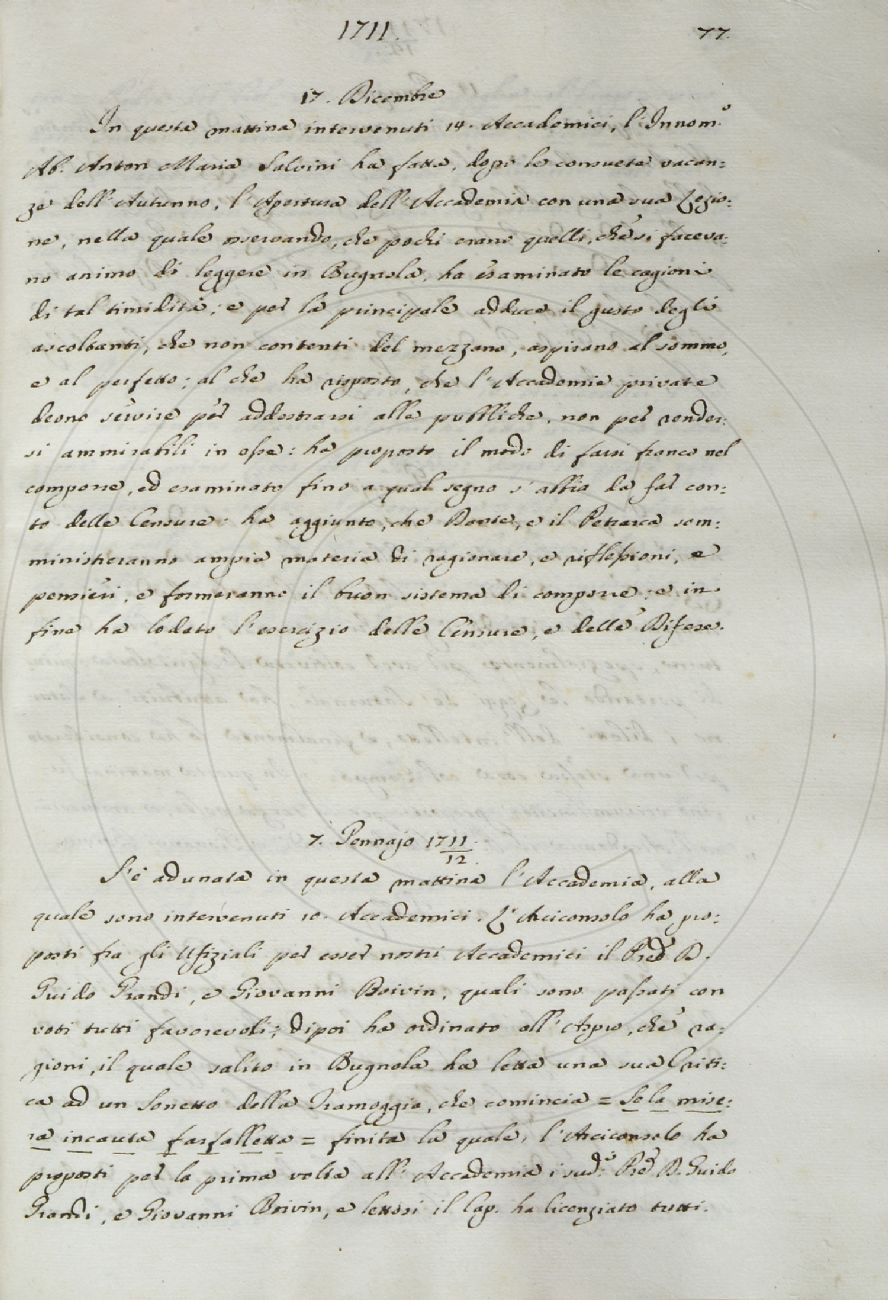 1711.
77.
17. Dicembre
In questa mattina intervenuti 14. Accademici, l'Innom.º
Ab.e Anton Maria Salvini ha fatta, dopo le consuete vacan:
ze dell'Autunno, l'Apertura dell'Accademia con una sua Lezio:
ne, nella quale osservando, che pochi erano quelli, che si faceva:
no animo di leggere in Bugnola, ha esaminato le cagioni
di tal timidità; e per la principale adduce il gusto degli
ascoltanti, che non contenti del mezzano, aspirano al sommo,
e al perfetto; al che ha risposto, che l'Accademie private
deono servire per addestrarsi alle pubbliche, non per render:
si ammirabili in esse: ha proposto il modo di farsi franco nel
comporre, ed esaminato fino a qual segno s'abbia da far con:
to delle Censure: ha aggiunto, che Dante, e il Petrarca som:
ministreranno ampia materia di ragionare, e riflessioni, e
pensieri, e formeranno il buon sistema di comporre; e in
fine ha lodato l'esercizio delle Censure, e delle Difese.
7. Gennajo 1711/12.
S'è adunata in questa mattina l'Accademia, alla
quale sono intervenuti 10. Accademici. L'Arciconsolo ha pro:
posti fra gli Ufiziali per esser nostri Accademici il Pred.e D.
Guido Grandi, e Giovanni Boivin, quali sono passati con
voti tutti favorevoli; dipoi ha ordinato all'Aspro, che ra:
gioni, il quale salito in Bugnola ha letta una sua Criti:
ca ad un Sonetto della Tramoggia, che comincia = Se la mise:
ra incauta farfalletta = finita la quale, l'Arciconsolo ha
proposti per la prima volta all'Accademia i sud.i Pred.e D. Guido
Grandi, e Giovanni Boivin, e lettosi il Cap. ha licenziato tutti.